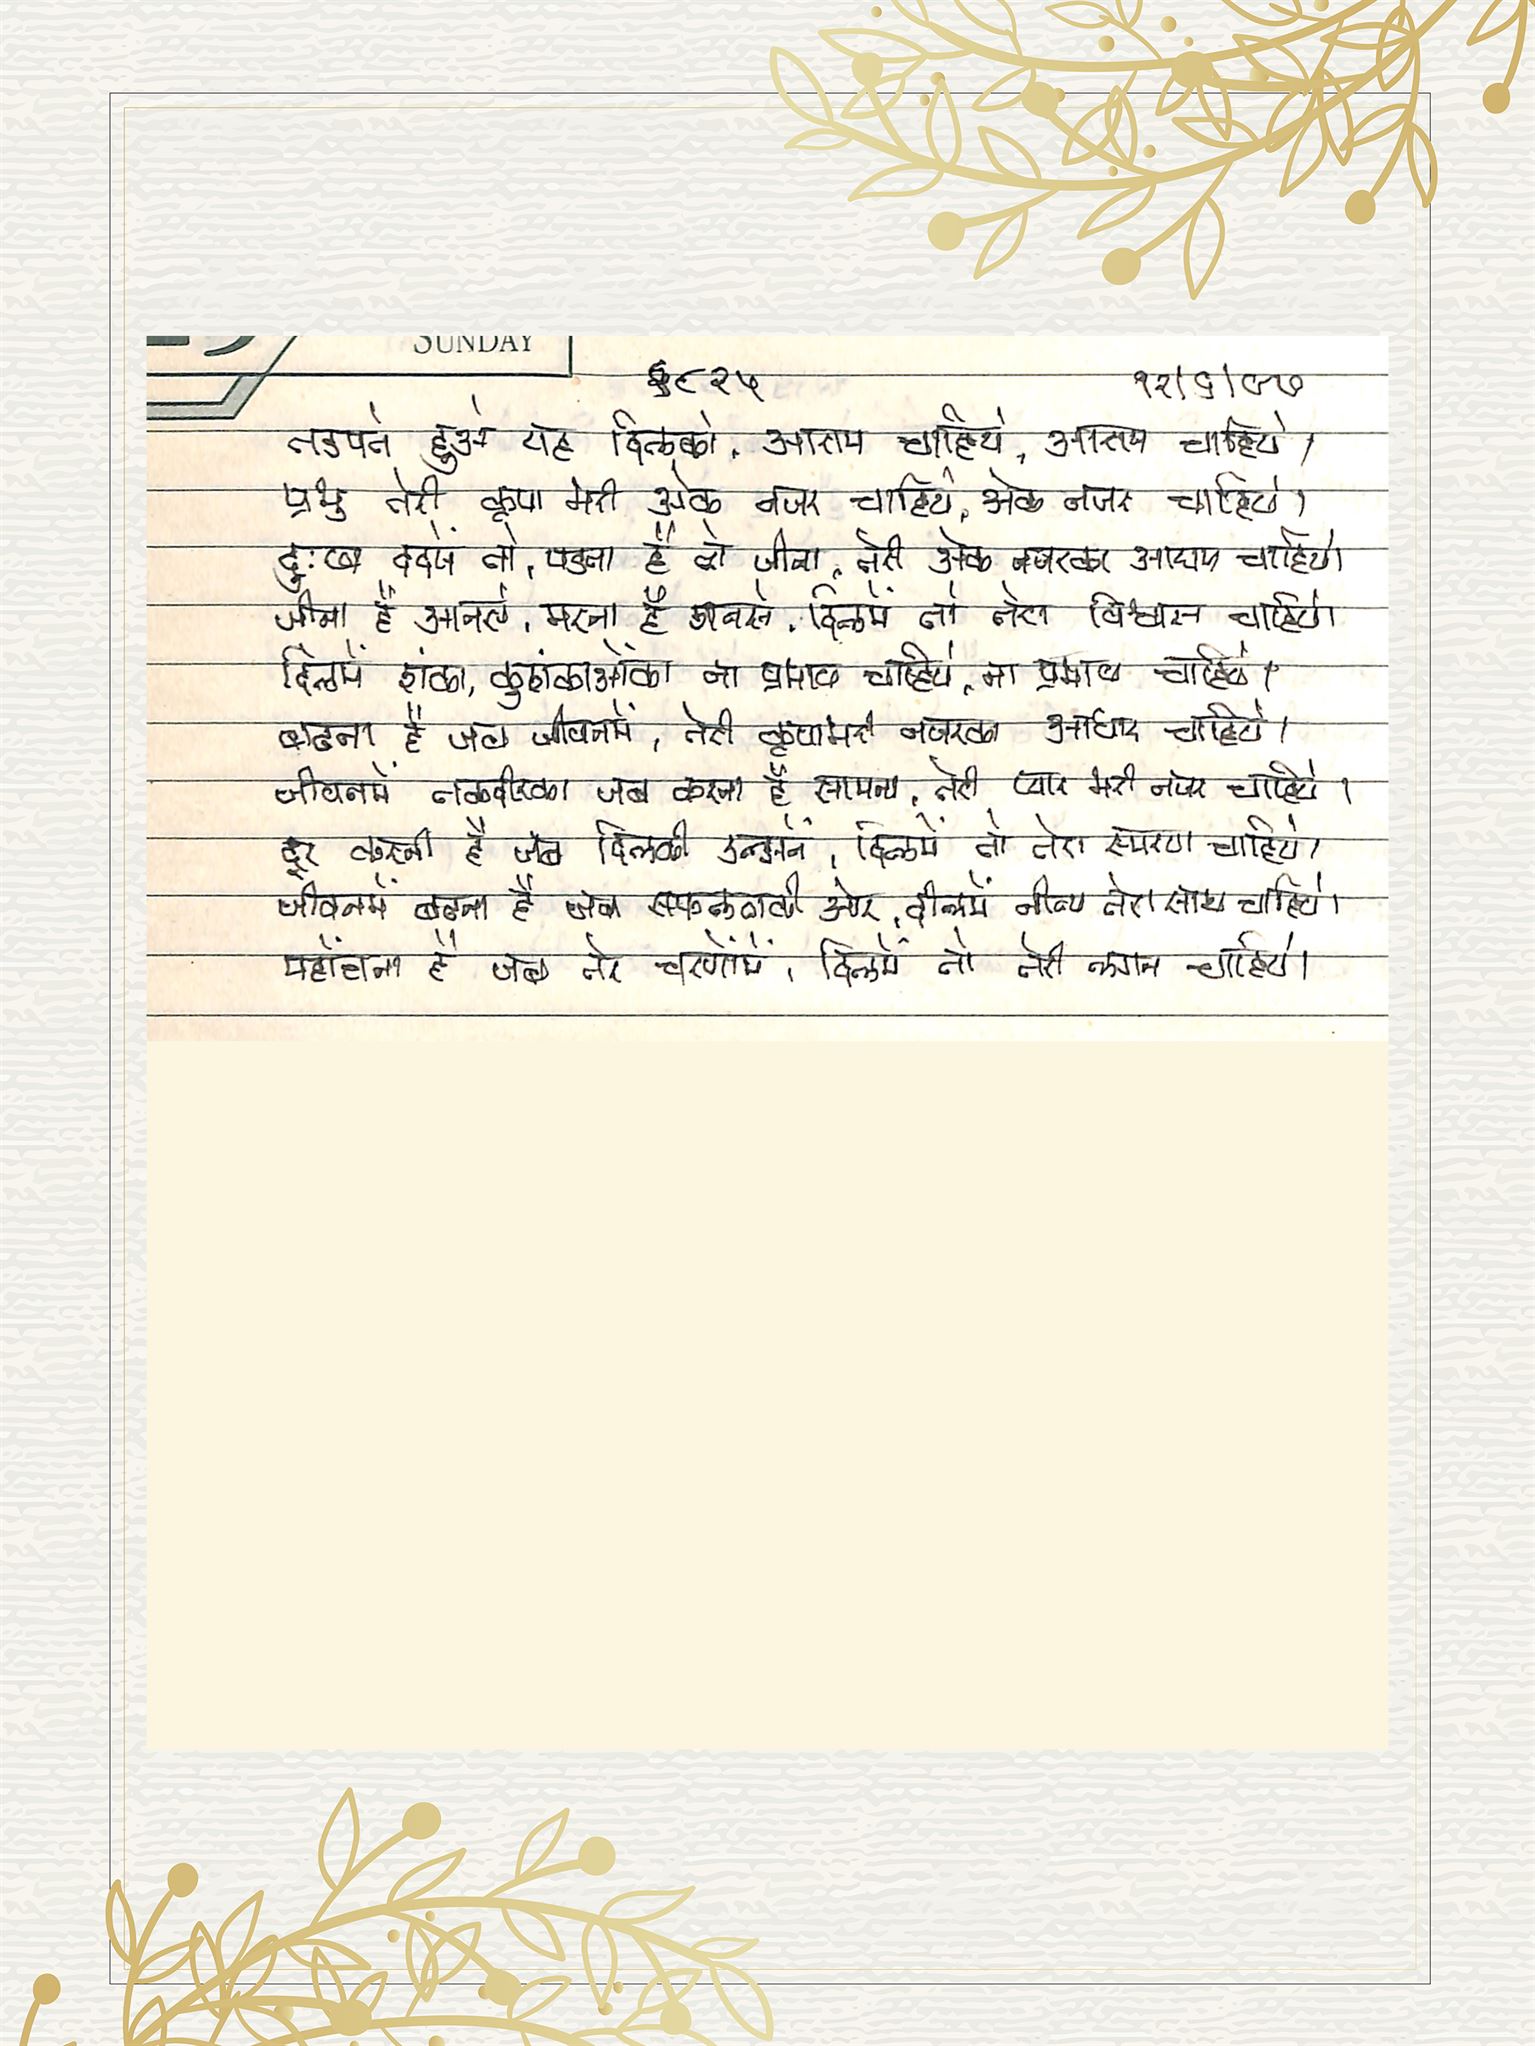 SUNDAY
६८२५ १२/६/८७
तडपते हुओ यह दिलको, आराम चाहिये, आराम चाहिये।
प्रभु तेरी कृपा भरी ओक नजर चाहिये, ओक नजर चाहिये।
दुःख दर्दमें तो, पडता है जो जीना, तेरी ओक नजरका आराम चाहिये।
जीना है मरना है दिलमें तो तेरा विश्वास चाहिये।
दिलमें शंका, कुशंकाओंका ना प्रभाव चाहिये, ना प्रभाव चाहिये।
बढना है जब जीवनमें, तेरी कृपाभरी नजरका आधार चाहिये।
जीवनमें तकदीरका जब करना है सामना, तेरी प्यार भरी नजर चाहिये।
दूर करनी है जब दिलकी उलझनें, दिलमें तो तेरा स्मरण चाहिये।
जीवनमें बढना है जब सफलताकी ओर, दीलमें नीत्य तेरा साथ चाहिये।
पहोंचना है जब तेरे चरणोंमें, दिलमें तो तेरी लगन चाहिये।